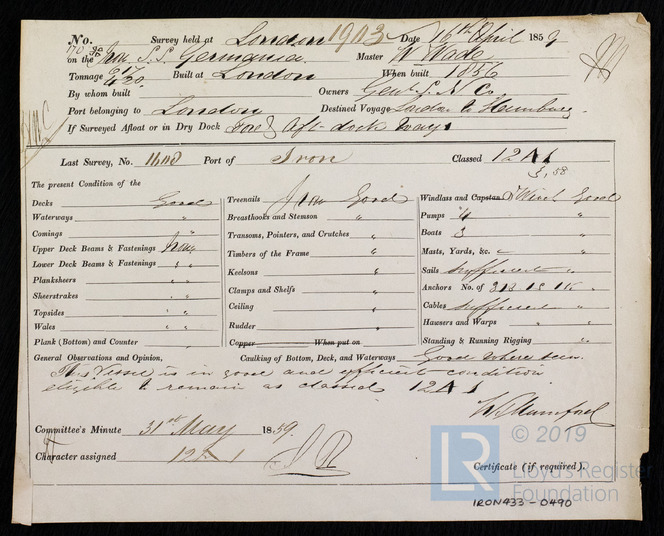 No. Survey held at London 1903 Date 16th April 1859
on the Iron S.S. Germania Master W Wade
Tonnage 420 Built at London When built 1856
By whom built Owners Genl. S. N Co.
Port belonging to London Destined Voyage London to Hamburg
If Surveyed Afloat or in Dry Dock Aft dock ways
Last Survey, No. Port of Iron Classed 12 A 1
3, 58
The present Condition of the
Decks Good
Waterways "
Comings "
Upper Deck Beams & Fastenings Iron "
Lower Deck Beams & Fastenings " "
Planksheers " "
Sheerstrakes " "
Topsides " "
Wales " "
Plank (Bottom) and Counter "
Treenails Iron Good
Breasthooks and Stemson "
Transoms, Pointers, and Crutches "
Timbers of the Frame "
Keelsons "
Clamps and Shelfs "
Ceiling "
Rudder "
Copper When put on
Windlass and Capstan Winch Good
Pumps 4 "
Boats 3 "
Masts, Yards, &c. "
Sails sufficient "
Anchors No. of 3 B 1 S 1 K "
Cables sufficient "
Hawsers and Warps "
Standing & Running Rigging "
General Observations and Opinion, Caulking of Bottom, Deck, and Waterways Good where seen.
This Vessel is in good and efficient condition
eligible to remain as classed 12 A 1
W Mumford
Committee's Minute 31st May 1859.
Character assigned 12 A 1
Certificate (if required).
© 2019
LR
Lloyd's Register
Foundation
IRON433-0490